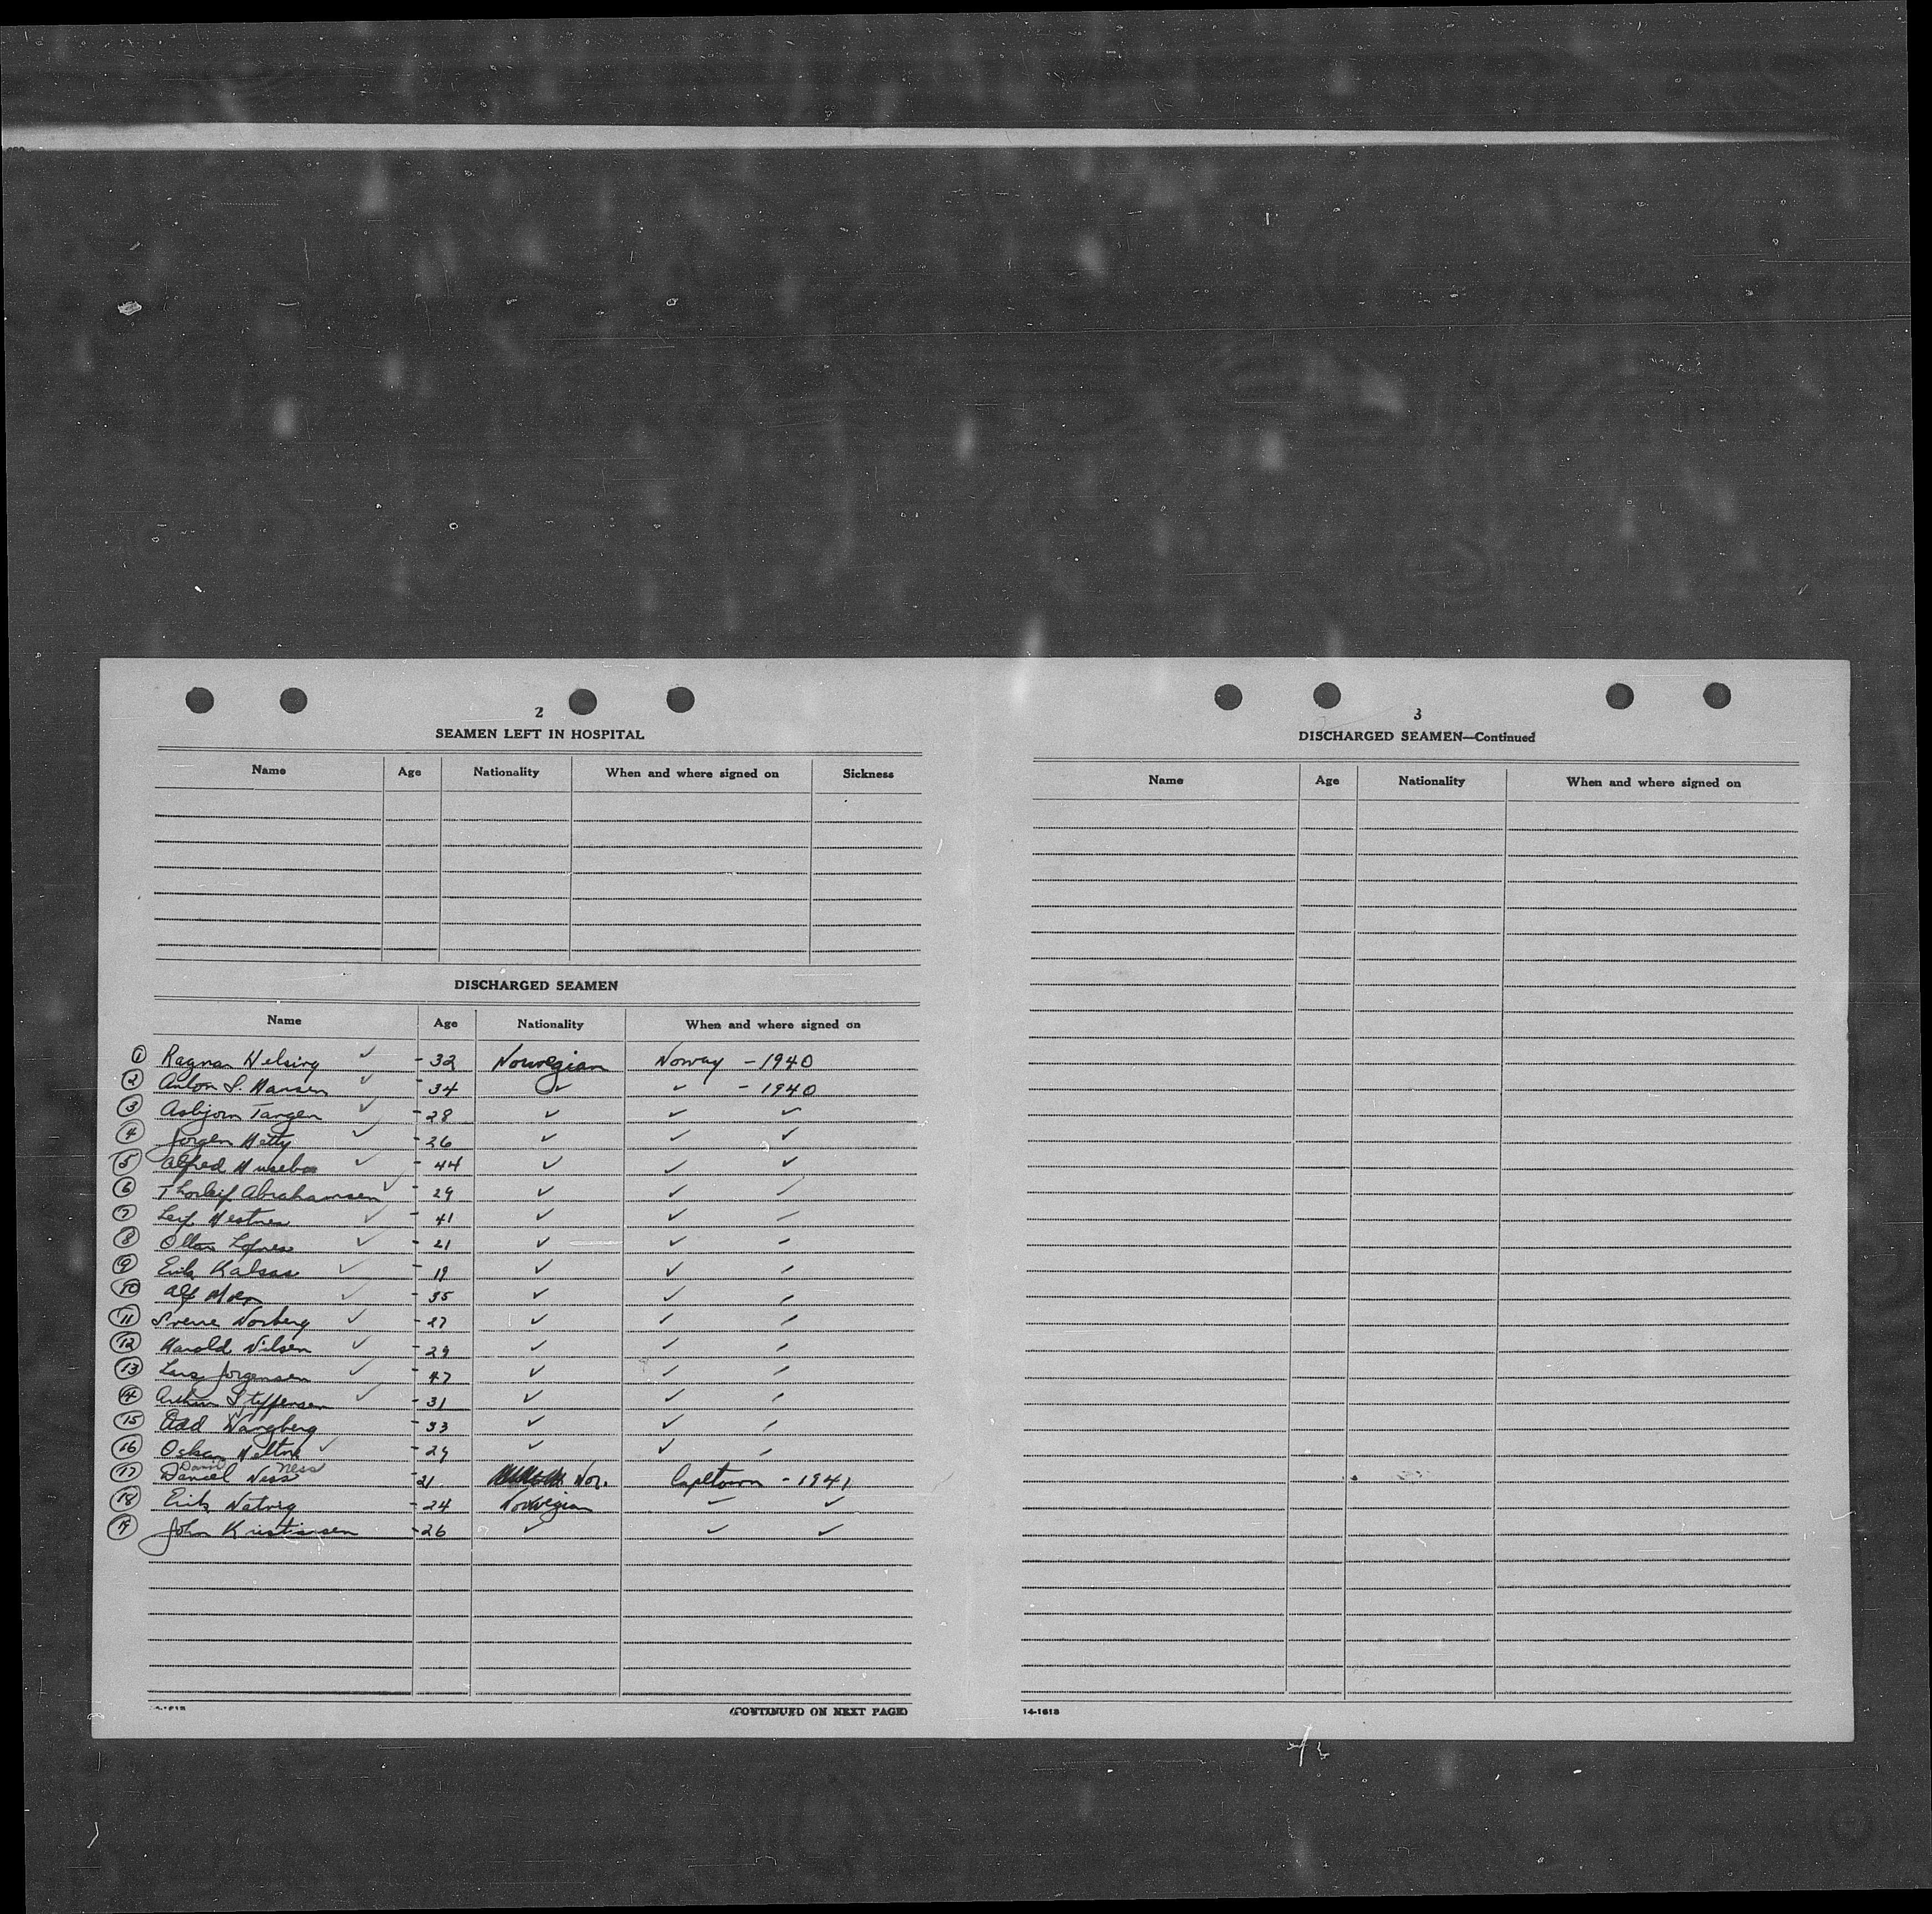 2
SEAMEN LEFT IN HOSPITAL
Name Age Nationality When and where signed on Sickness
DISCHARGED SEAMEN
Name Age Nationality When and where signed on
1 Ragnar Helsing ✓ - 32 Norwegian Norway - 1940
2 Anton S. Hansen ✓ - 34 ✓ ✓ - 1940
3 Asbjorn Tangen ✓ - 28 ✓ ✓ ✓
4 Jorgen Hetty ✓ - 26 ✓ ✓ ✓
5 Alfred Husebo ✓ - 44 ✓ ✓ ✓
6 Thorleif Abrahamsen ✓ - 29 ✓ ✓ ✓
7 Leif Hestnes ✓ - 41 ✓ ✓ ✓
8 ✓ - 21 ✓ ✓ ✓
9 Erik Kalsas ✓ - 19 ✓ ✓ ✓
10 Alf Moen ✓ - 35 ✓ ✓ ✓
11 Sverre Norberg ✓ - 27 ✓ ✓ ✓
12 Harold Nilsen ✓ - 29 ✓ ✓ ✓
13 Lars Jorgensen ✓ - 47 ✓ ✓ ✓
14 Arthur Steffensen ✓ - 31 ✓ ✓ ✓
15 Odd Wangberg - 33 ✓ ✓ ✓
16 Oskar ✓ - 29 ✓ ✓ ✓
17 Daniel Ness - 21 Nor. Capetown - 1941
18 Erik Natvig - 24 Norwegian ✓ ✓
19 John Kristiansen - 26 ✓ ✓ ✓
(CONTINUED ON NEXT PAGE)
3
DISCHARGED SEAMEN—Continued
Name Age Nationality When and where signed on
14-1618